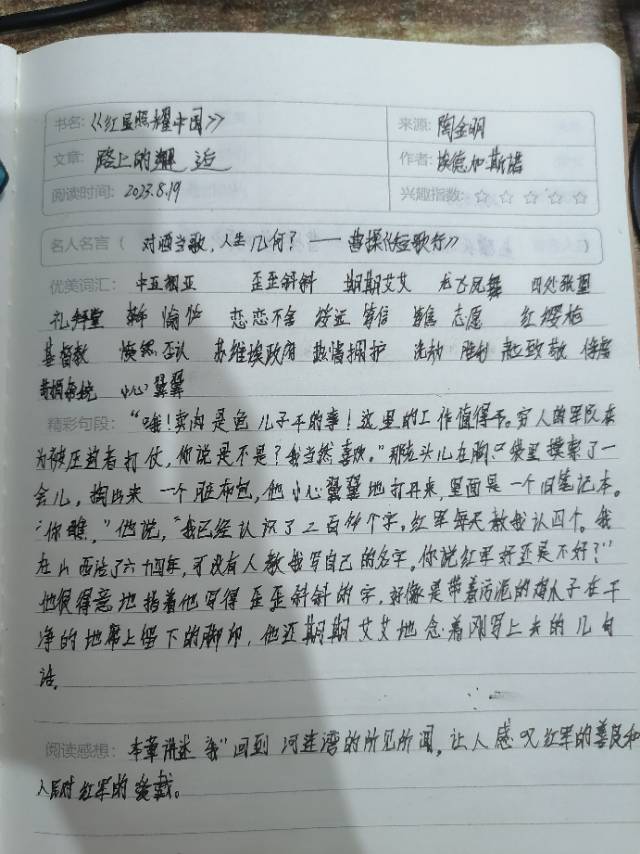 书名: 《红星照耀中国》 来源: 陶金明
文章: 路上的邂逅 作者: 埃德加·斯诺
阅读时间: 2023.8.19 兴趣指数: ☆ ☆ ☆ ☆ ☆
名人名言( 对酒当歌,人生几何? —— 曹操《短歌行》 )
优美词汇: 歪歪斜斜 期期艾艾 龙飞凤舞 四处张望
礼拜堂 恋恋不舍 笃信 志愿 红缨枪
基督教 否认 苏维埃政府 热情拥护 洗劫 胜利 致敬
小心翼翼
精彩句段: “哦!卖肉是兔儿子干的事!这里的工作值得干。穷人的军队在
为被压迫者打仗,你说是不是?我当然喜欢。”那老头儿在胸口袋里摸索了一
会儿,掏出来一个脏布包,他小心翼翼地打开来,里面是一个旧笔记本。
“你瞧,”他说,“我已经认识了二百个字。红军每天教我认四个。我
在山西活了六十四年,可没有人教我写自己的名字。你说红军好还是不好?”
他很得意地指着他写得歪歪斜斜的字,好像是带着污泥的鸡爪子在干
净的地席上留下的脚印,他还期期艾艾地念着刚写上去的几句
话。
阅读感想: 本章讲述“我”回到河连湾的所见所闻,让人感叹红军的善良和
人民对红军的爱戴。